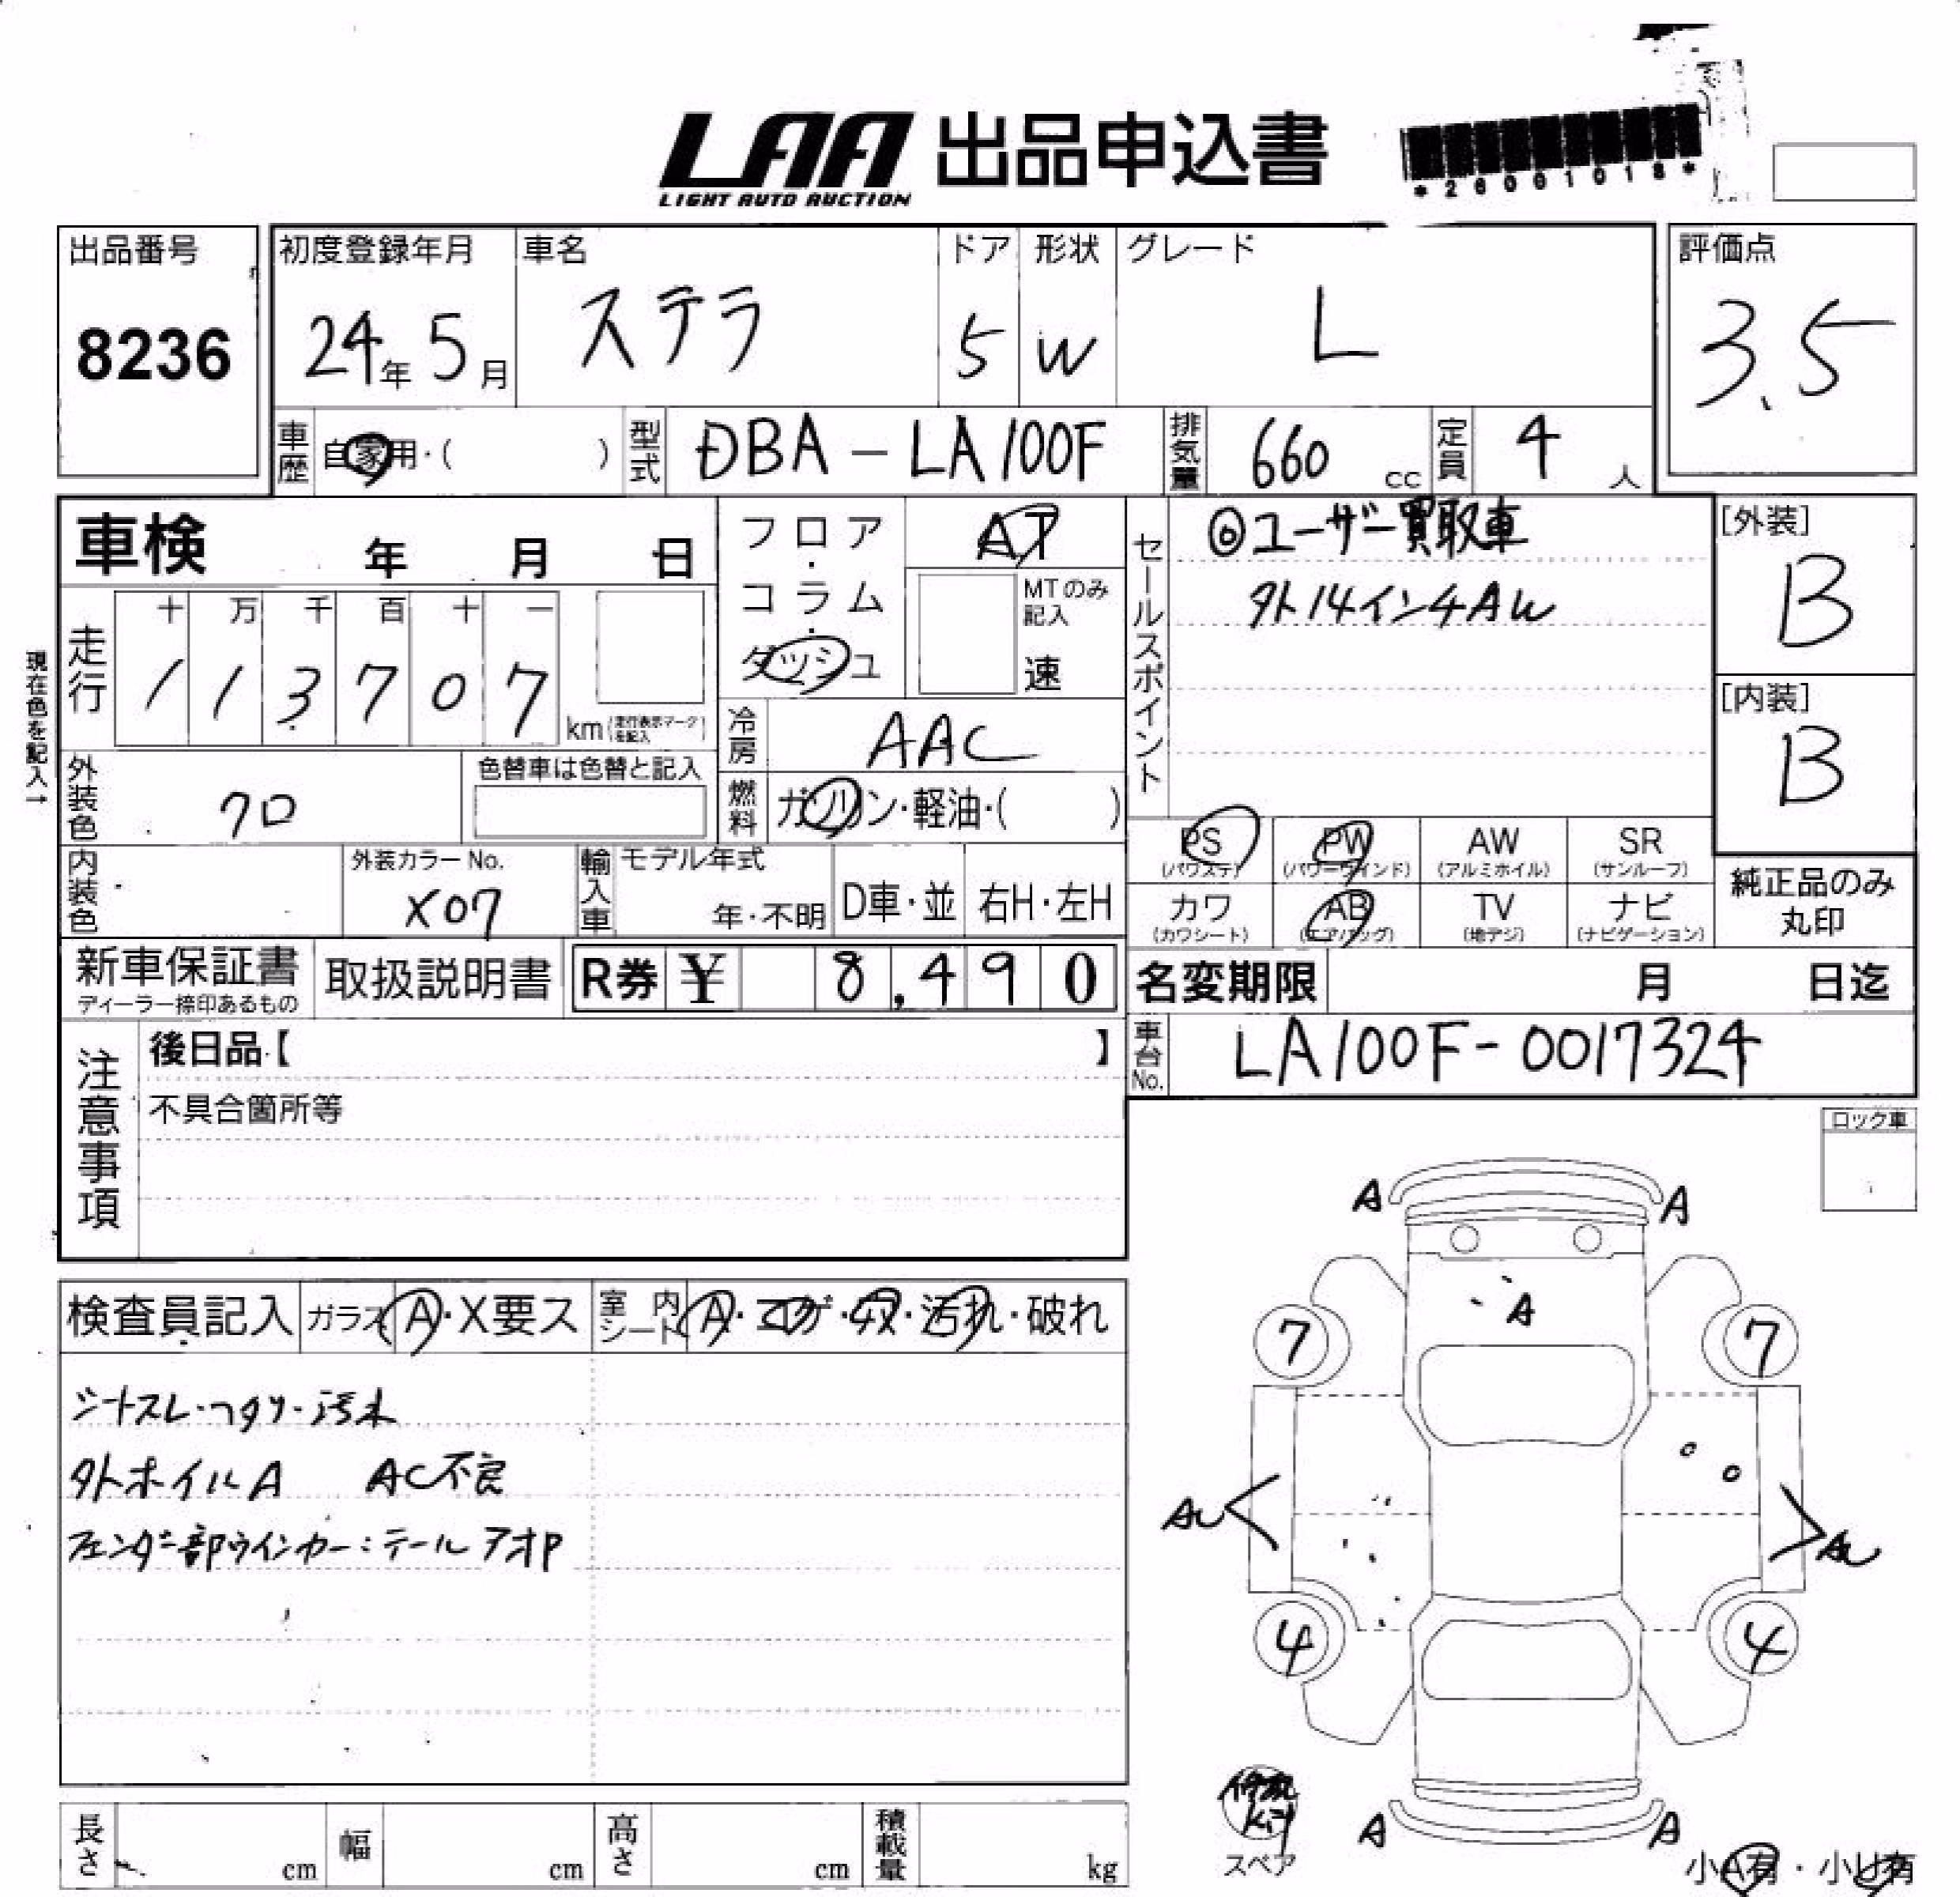 LAA 出品申込書
LIGHT AUTO AUCTION
*26001018*
出品番号
8236
初度登録年月
24年 5月
車名
ステラ
ドア
5
形状
W
グレード
L
評価点
3.5
車歴 自家用・( )
型式 DBA-LA100F
排気量 660 cc
定員 4 人
車検 年 月 日
フロア・コラム・ダッシュ
AT
MTのみ記入
速
セールスポイント
◎ユーザー買取車
外14インチAW
[外装]
B
[内装]
B
現在色を記入→
走行
十 万 千 百 十 一
1 1 3 7 0 7
km(走行表示マークを記入)
冷房 AAC
外装色 クロ
色替車は色替と記入
燃料 ガソリン・軽油・( )
内装色
外装カラーNo.
X07
輸入車
モデル年式
年・不明
D車・並
右H・左H
PS (パワステ)
PW (パワーウィンド)
AW (アルミホイル)
SR (サンルーフ)
カワ (カワシート)
AB (エアバッグ)
TV (地デジ)
ナビ (ナビゲーション)
純正品のみ丸印
新車保証書
ディーラー捺印あるもの
取扱説明書
R券 ¥ 8,490
名変期限 月 日迄
車台No. LA100F-0017324
注意事項
後日品【 】
不具合箇所等
ロック車
検査員記入
ガラス A・X要ス
室内シート A・コゲ・穴・汚れ・破れ
シートスレ・ヘタリ・汚れ
外ホイルA AC不良
フェンダー部ウインカー:テール アオP
A A
A
7 7
4 4
A A
修理kit
スペア
小A有・小U有
長さ cm
幅 cm
高さ cm
積載量 kg